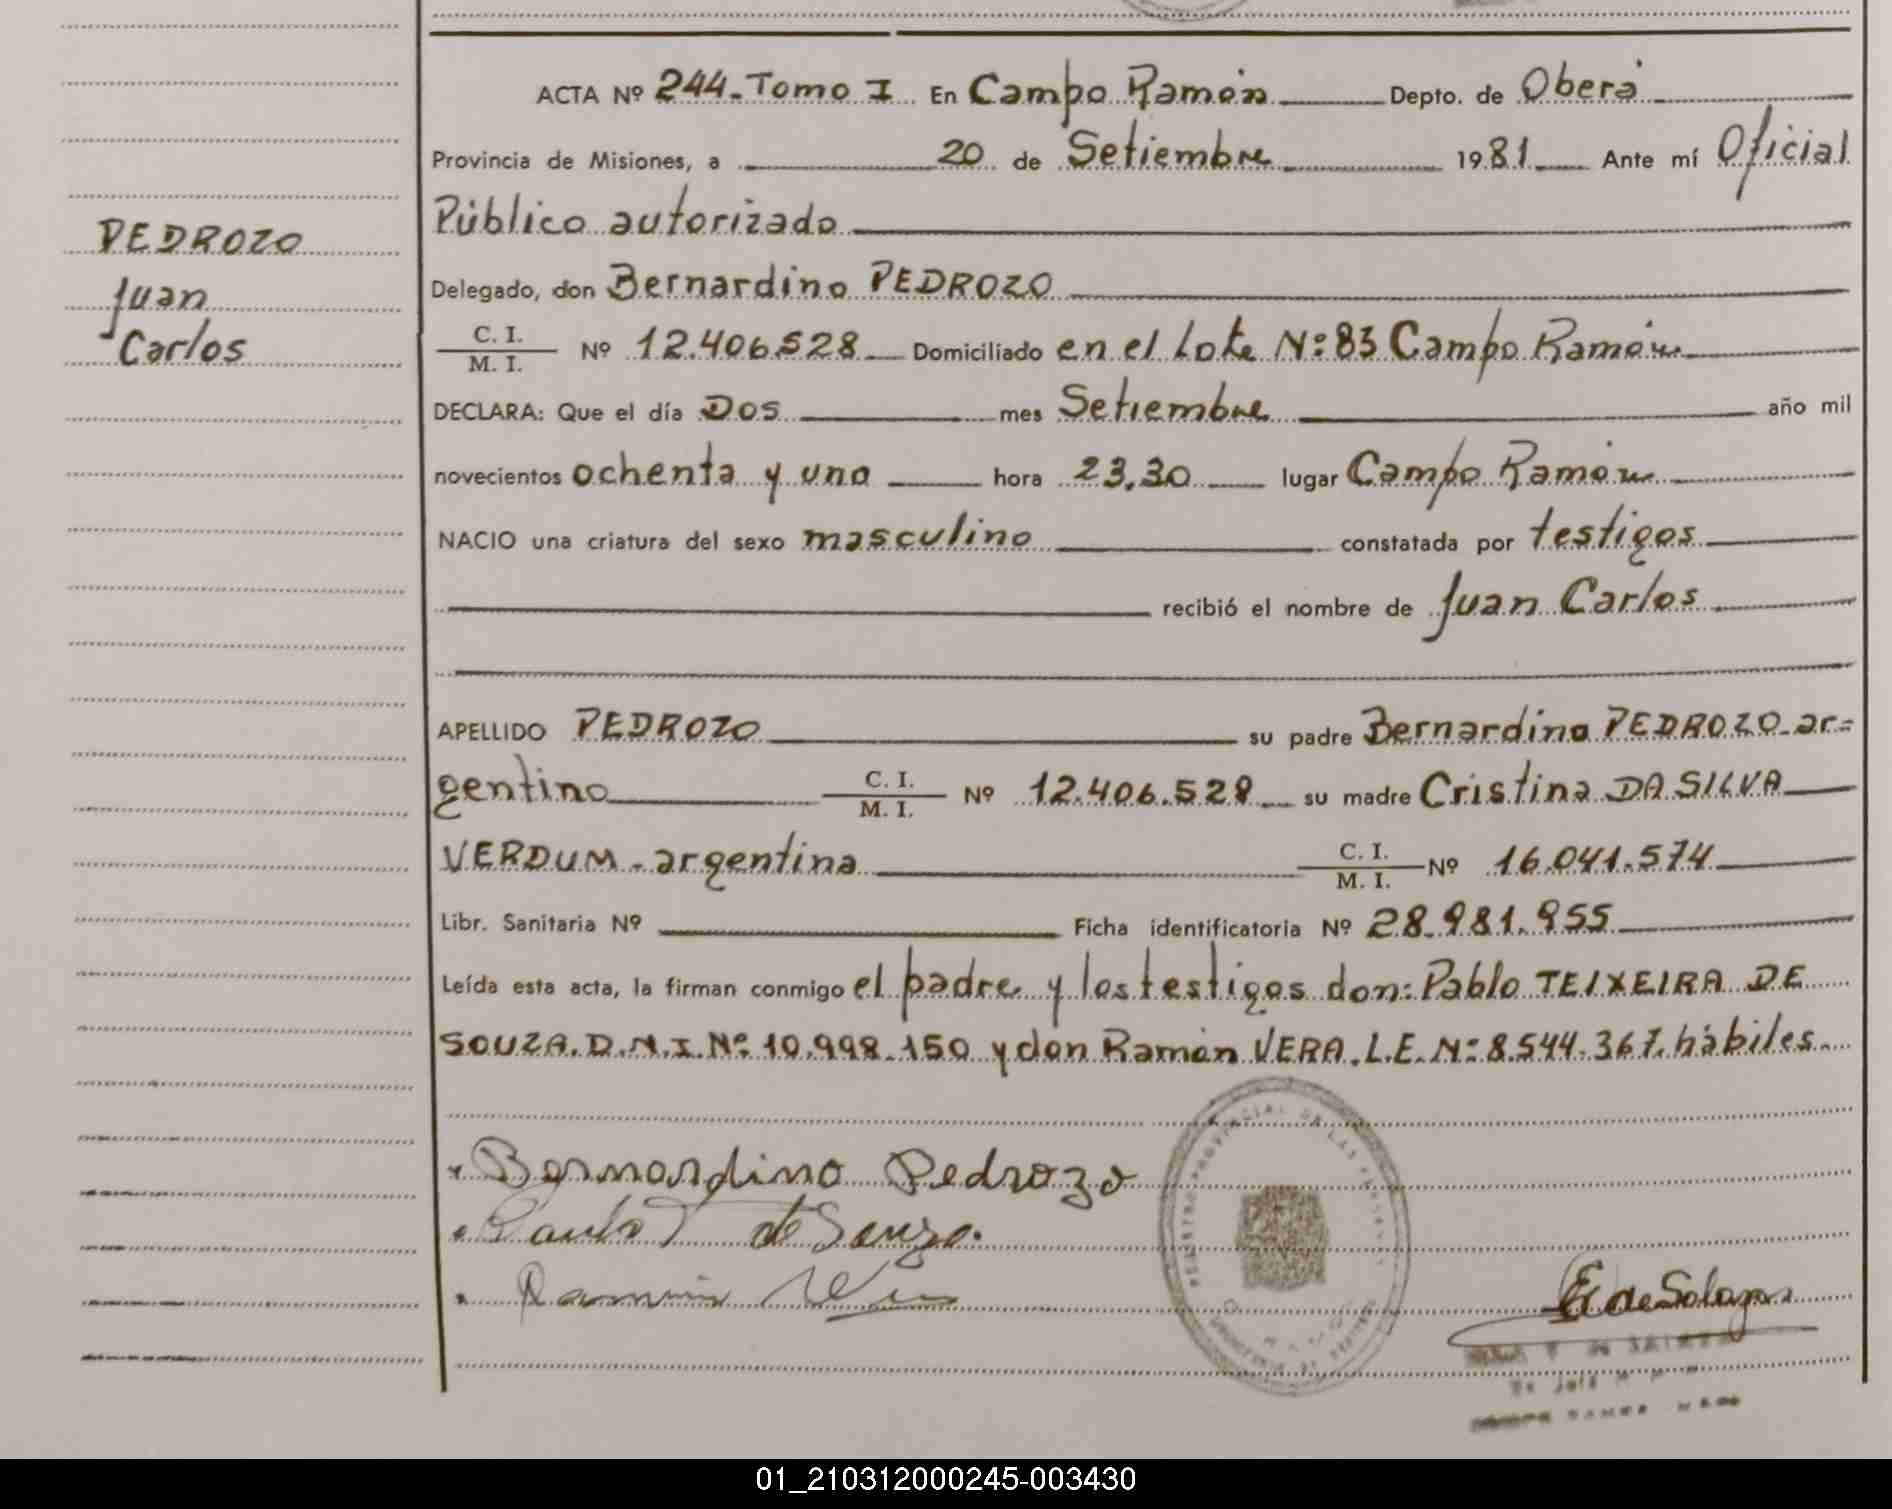 ACTA Nº 244-Tomo I En Campo Ramón Depto. de Oberá
Provincia de Misiones, a 20 de Setiembre 1981 Ante mí Oficial
Público autorizado
PEDROZO
Juan
Carlos
Delegado, don Bernardino PEDROZO
C. I.
M. I. Nº 12.406.528 Domiciliado en el Lote Nº: 83 Campo Ramón
DECLARA: Que el día Dos mes Setiembre año mil
novecientos ochenta y uno hora 23,30 lugar Campo Ramón
NACIO una criatura del sexo masculino constatada por testigos
recibió el nombre de Juan Carlos
APELLIDO PEDROZO su padre Bernardino PEDROZO-ar=
gentino C. I. M. I. Nº 12.406.528 su madre Cristina DA SILVA
VERDUM-argentina C. I. M. I. Nº 16.041.574
Libr. Sanitaria Nº Ficha identificatoria Nº 28.981.955
Leída esta acta, la firman conmigo el padre y los testigos don: Pablo TEIXEIRA DE
SOUZA. D.N.I. Nº 10.998.150 y don Ramón VERA. L.E. Nº: 8.544.367. hábiles.
Bernardino Pedrozo
de Souza.
Ramón
REGISTRO PROVINCIAL DE LAS PERSONAS
01_210312000245-003430